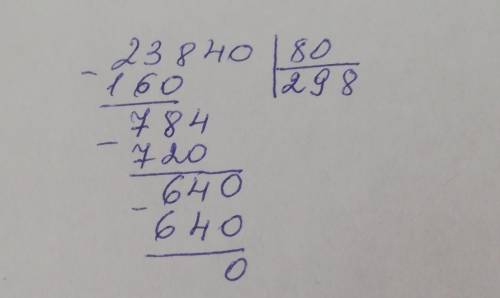 23840 80
- 160 298
784
- 720
640
- 640
0